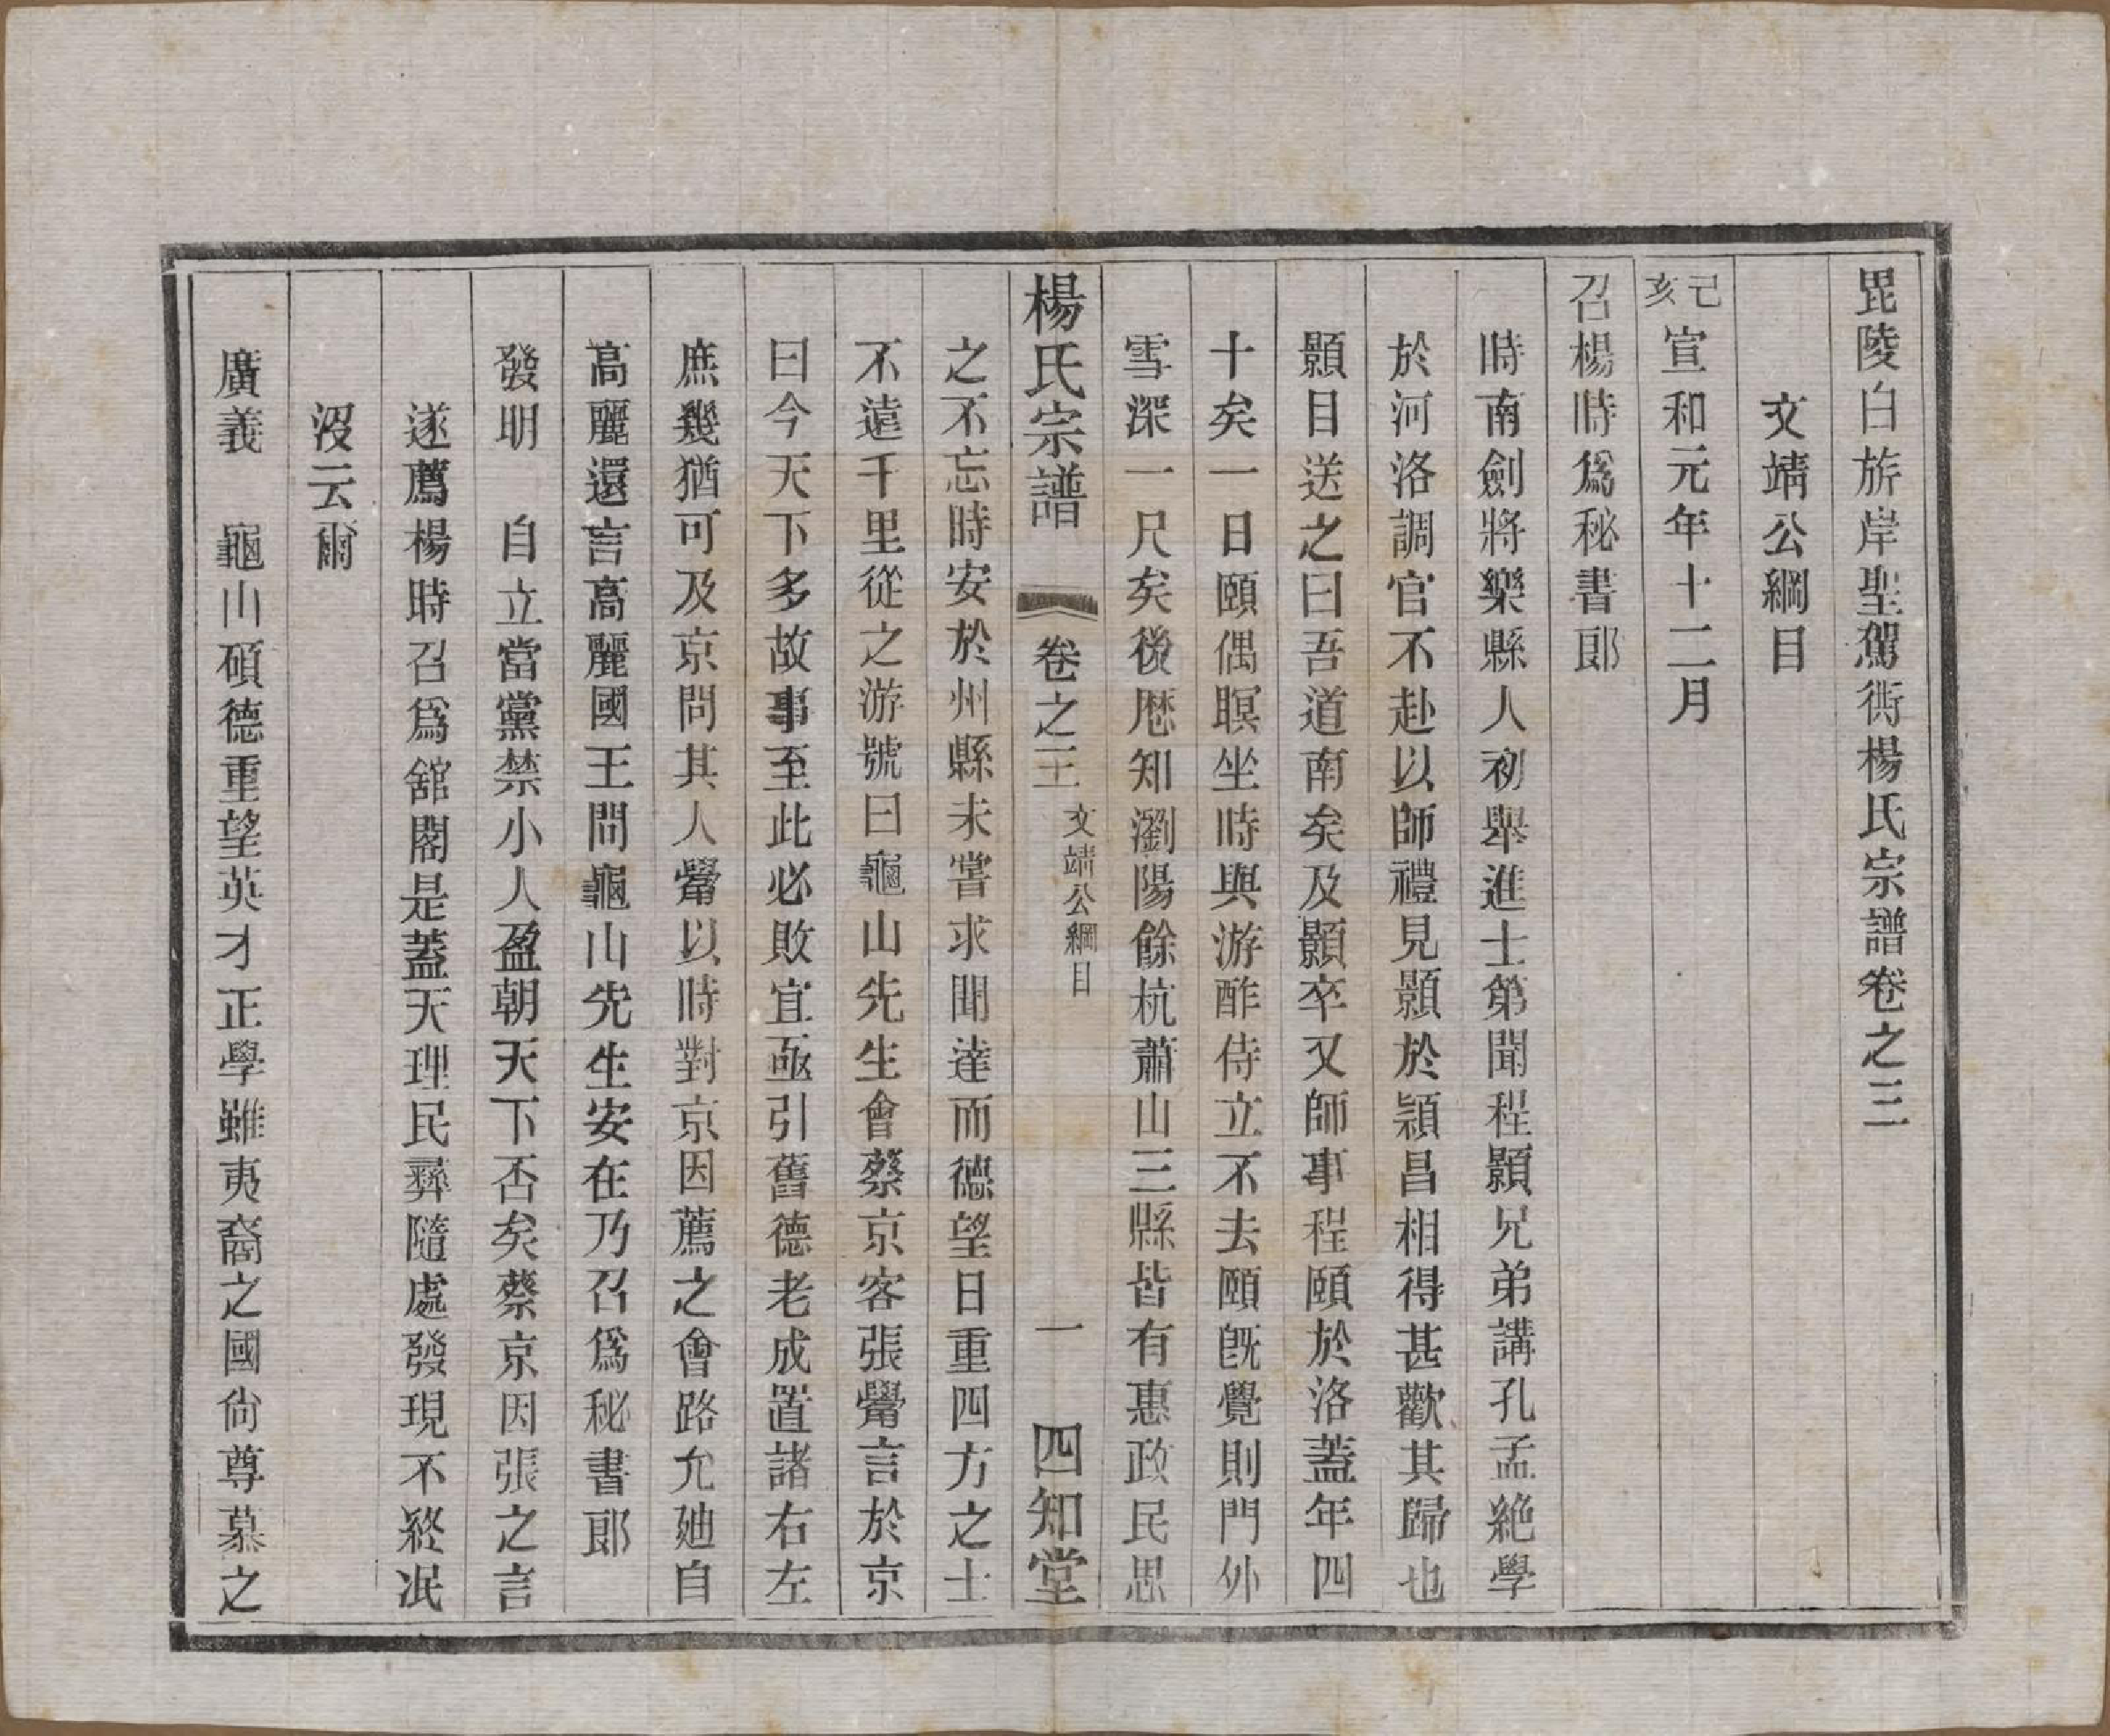 毘陵白旂岸聖駕衖楊氏宗譜卷之三
文靖公綱目
己亥宣和元年十二月
召楊時爲秘書郞
時南劍將樂縣人初舉進士第聞程顥兄弟講孔孟絶學
於河洛調官不赴以師禮見顥於潁昌相得甚歡其歸也
顥目送之曰吾道南矣及顥卒又師事程頤於洛蓋年四
十矣一日頤偶瞑坐時與游酢侍立不去頤旣覺則門外
雪深一尺矣後歴知瀏陽餘杭蕭山三縣皆有惠政民思
楊氏宗譜 卷之三 文靖公綱目 一 四知堂
之不忘時安於州縣未嘗求聞達而德望日重四方之士
不遠千里從之游號曰龜山先生會蔡京客張觷言於京
曰今天下多故事至此必敗宜亟引舊德老成置諸右左
庶幾猶可及京問其人觷以時對京因薦之會路允廸自
高麗還言高麗國王問龜山先生安在乃召爲秘書郞
發明 自立當黨禁小人盈朝天下否矣蔡京因張之言
遂薦楊時召爲舘閣是蓋天理民彛隨處發現不終泯
沒云爾
廣義 龜山碩德重望英才正學雖夷裔之國尙尊慕之